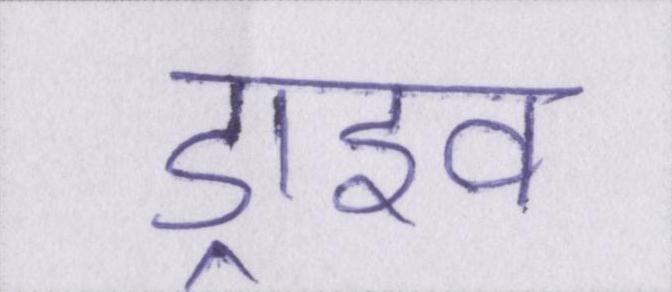 ड्राइव